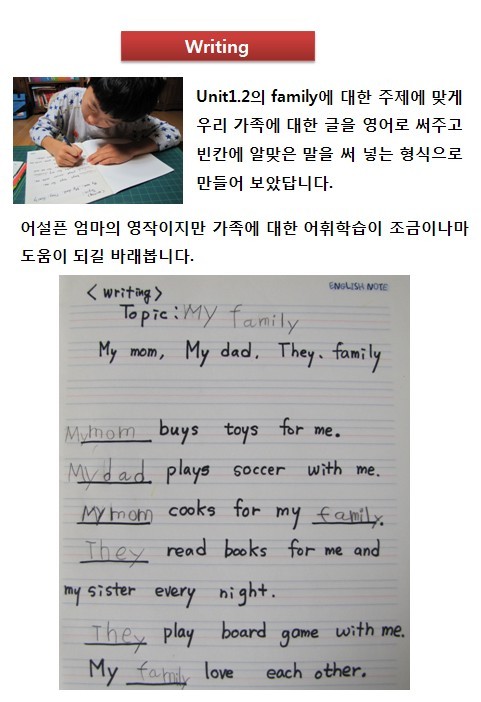 Writing
Unit1.2의 family에 대한 주제에 맞게
우리 가족에 대한 글을 영어로 써주고
빈칸에 알맞은 말을 써 넣는 형식으로
만들어 보았답니다.
어설픈 엄마의 영작이지만 가족에 대한 어휘학습이 조금이나마
도움이 되길 바래봅니다.
ENGLISH NOTE
< writing >
Topic : My family
My mom, My dad, They, family
My mom buys toys for me.
My dad plays soccer with me.
My mom cooks for my family.
They read books for me and
my sister every night.
They play board game with me.
My family love each other.